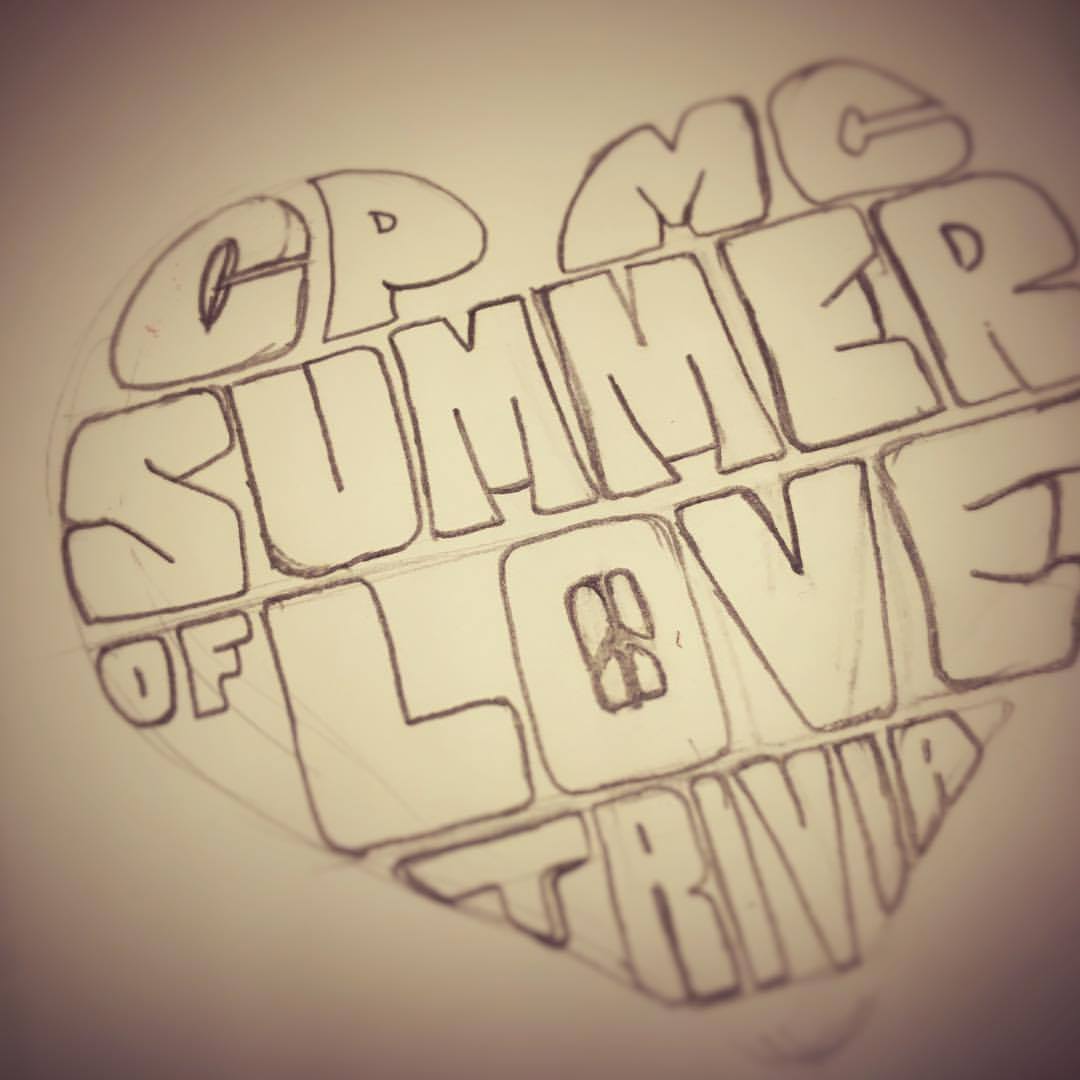 CP MC
SUMMER
OF LOVE
TRIVIA